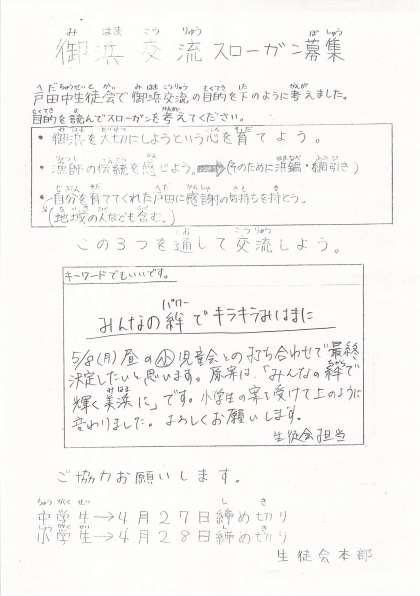 御浜交流スローガン募集
戸田中生徒会で御浜交流の目的を下のように考えました。
目的を読んでスローガンを考えてください。
・御浜を大切にしようという心を育てよう。
・漁師の伝統を感じよう。⇒(そのために浜鍋・網引き)
・自分を育ててくれた戸田に感謝の気持ちを持とう。
(地域の人なども含む。)
この3つを通して交流しよう。
キーワードでもいいです。
みんなの絆でキラキラみはまに
5/8(月)昼の小児童会との打ち合わせで最終
決定したいと思います。原案は、「みんなの絆で
輝く美浜に」です。小学生の案を受けて上のように
変わりました。よろしくお願いします。
生徒会担当
ご協力お願いします。
中学生→4月27日締め切り
小学生→4月28日締め切り
生徒会本部